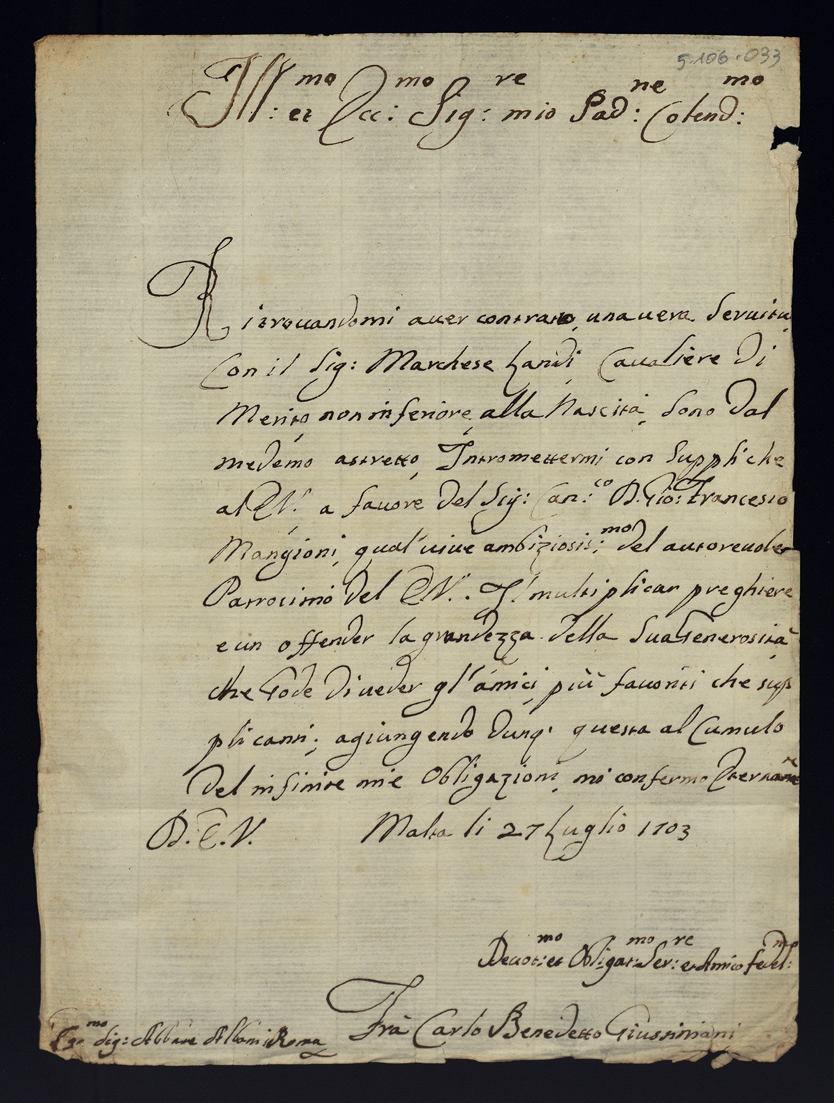 5-106-033
Ill:mo et Ecc:mo Sig:re mio Pad:ne Colend:mo
Ritrovandomi aver contratto, una vera Servitù
Con il Sig: Marchese Landi Cavaliere di
Merito non inferiore alla Nascita, Sono dal
medemo astretto, Intromettermi con Suppliche
al E.V. a favore del Sig: Can:co D. Gio: Francesco
Mangioni, qual vive ambiziosis:mo del autorevole
Patrocinio del E.V.. Il multiplicar preghiere
e un offender la grandezza della Sua Generosità
che Gode di veder gl'amici più favoriti che sup
plicanti; agiungendo dunq: questa al Cumulo
del infinite mie Obligazioni, mi confermo Eternam.te
D. E. V. Malta li 27 Luglio 1703
Devot:mo et Obligat:mo Ser:re et Amico fedel:mo
Frà Carlo Benedetto Giustiniani
Sig: Abbate Albani Roma